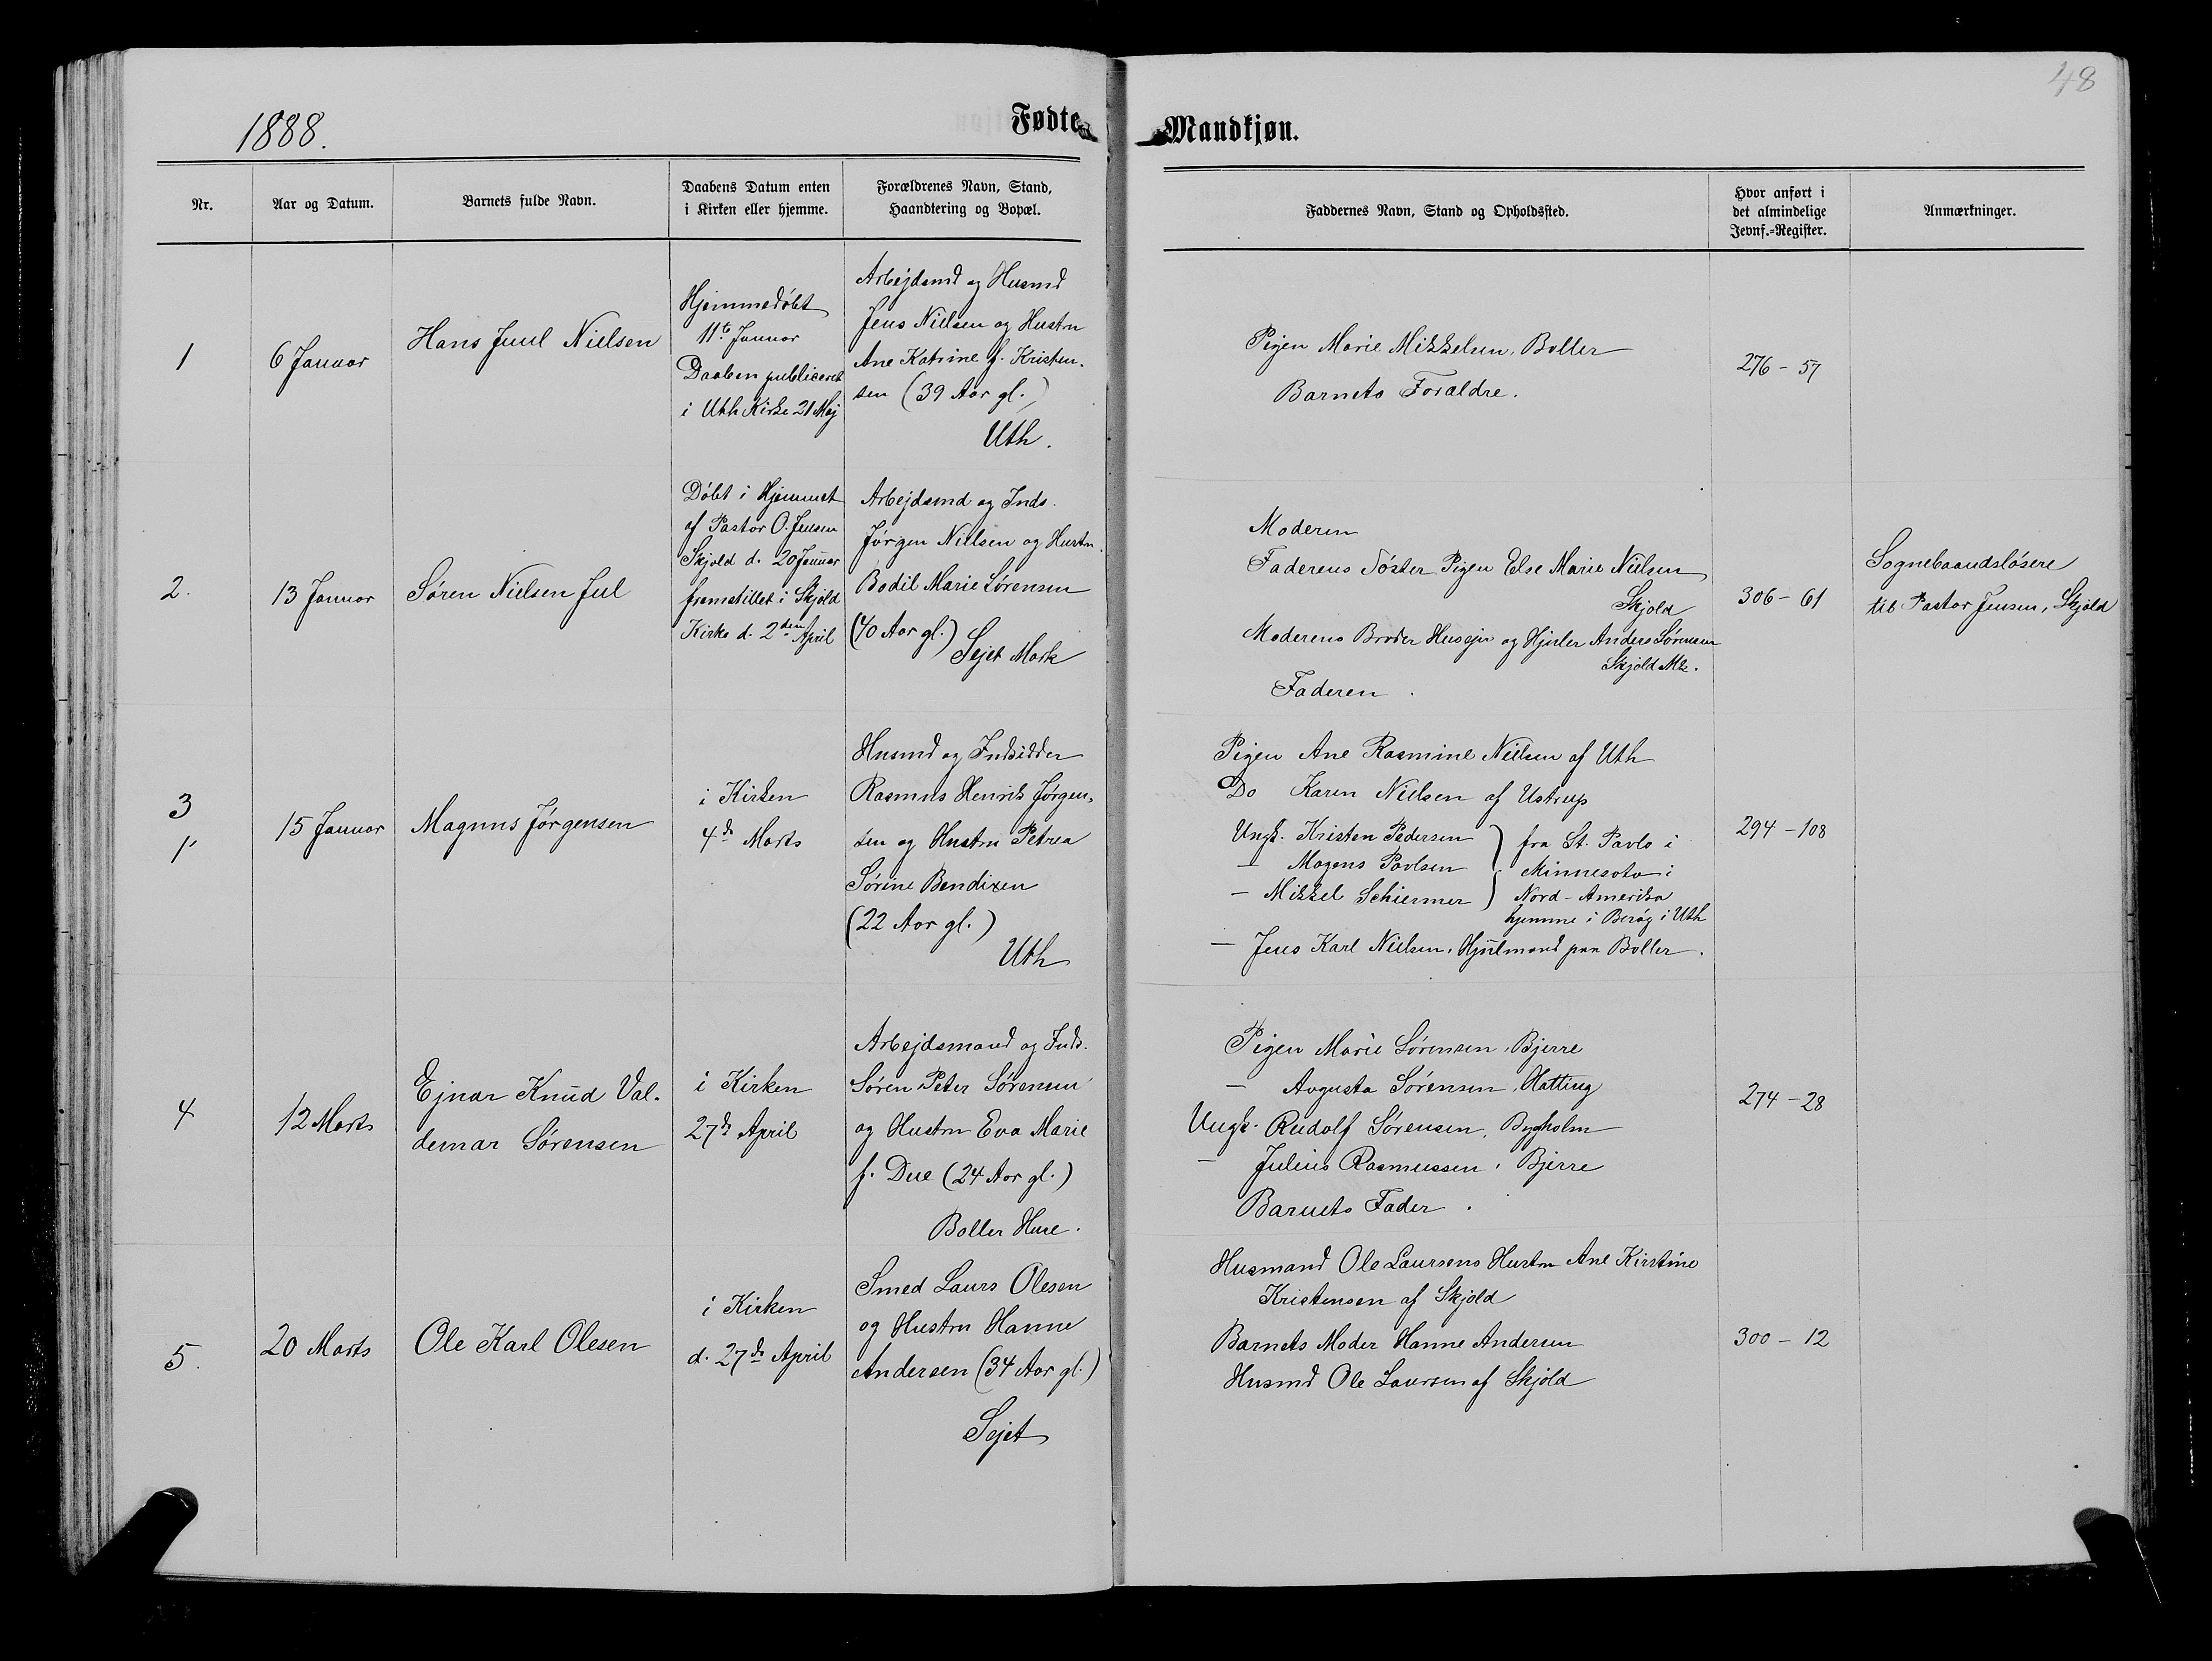 48
1888.
Fødte
Mandkjøn.
Nr.
Aar og Datum.
Barnets fulde Navn.
Daabens Datum enten
i Kirken eller hjemme.
Forældrenes Navn, Stand,
Haandtering og Bopæl.
Faddernes Navn, Stand og Opholdssted.
Hvor anført i
det almindelige
Jevnf.=Register.
Anmærkninger.
1
6 Januar
Hans Juul Nielsen
Hjemmedøbt
11te Januar
Daaben publiceret
i Uth Kirke 21 Maj
Arbejdsmd og Husmd
Jens Nielsen og Hustru
Ane Katrine f. Kristen-
sen (39 Aar gl.)
Uth.
Pigen Marie Mikkelsen, Boller
Barnets Foraldre.
276 - 57
2.
13 Januar
Søren Nielsen Jul
Døbt i Hjemmet
af Pastor O. Jensen
Skjold d. 20 Januar
fremstillet i Skjold
Kirke d. 2den April
Arbejdsmd og Inds.
Jørgen Nielsen og Hustru
Bodil Marie Sørensen
(40 Aar gl.)
Sejet Mark
Moderen
Faderens Søster Pigen Else Marie Nielsen
Skjold
Moderens Broder Husejer og Hjuler Anders Sørensen
Skjold Mk.
Faderen.
306 - 61
Sognebaandsløsere
til Pastor Jensen, Skjold
3
1'
15 Januar
Magnus Jørgensen
i Kirken
4de Marts
Husmd og Indsidder
Rasmus Henrik Jørgen-
sen og Hustru Petrea
Sørine Bendixen
(22 Aar gl.)
Uth
Pigen Ane Rasmine Nielsen af Uth
Do Karen Nielsen af Ustrup
Ungk. Kristen Pedersen
- Mogens Povlsen
- Mikkel Schiermer
fra St. Pavlo i
Minnesota i
Nord-Amerika
hjemme i Besøg i Uth
- Jens Karl Nielsen, Hjulmand paa Boller.
294 - 108
4
12 Marts
Ejnar Knud Val-
demar Sørensen
i Kirken
27de April
Arbejdsmand og Inds.
Søren Peter Sørensen
og Hustru Eva Marie
f. Due (24 Aar gl.)
Boller Huse.
Pigen Marie Sørensen, Bjerre
- Avgusta Sørensen, Hatting
Ungk. Rudolf Sørensen, Bygholm
- Julius Rasmussen, Bjerre
Barnets Fader.
274 - 28
5.
20 Marts
Ole Karl Olesen
i Kirken
d. 27de April
Smed Laurs Olesen
og Hustru Hanne
Andersen (34 Aar gl.)
Sejet
Husmand Ole Laursens Hustru Ane Kirstine
Kristensen af Skjold
Barnets Moder Hanne Andersen
Husmd Ole Laursen af Skjold
300 - 12